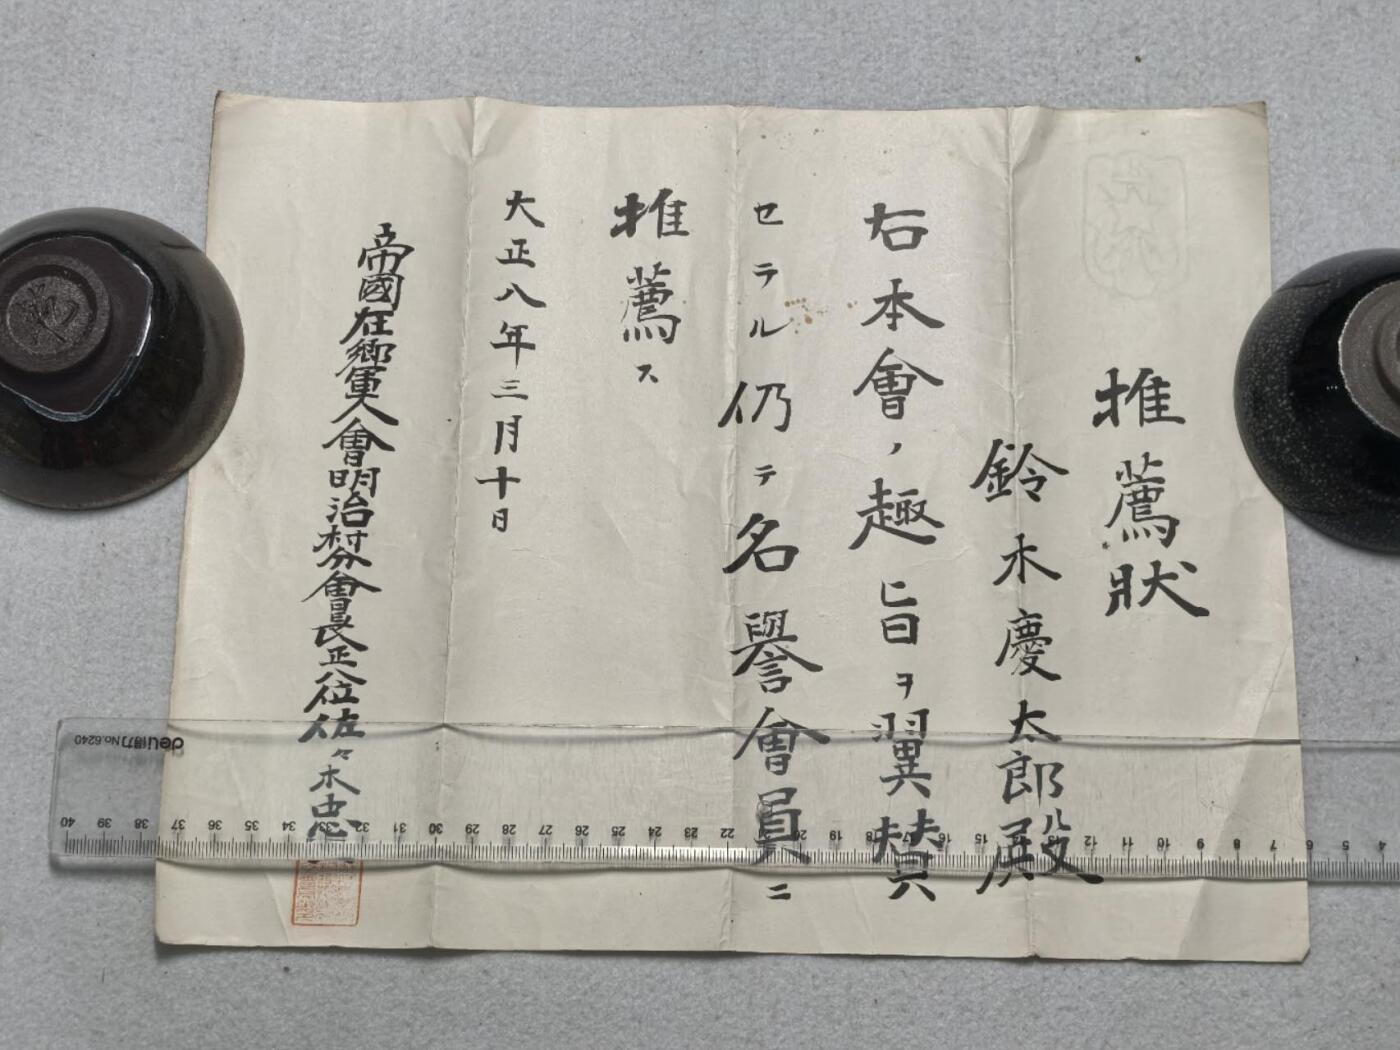 推薦狀
鈴木慶太郎殿
右本會ノ趣旨ヲ翼賛
セラル仍テ名譽會員ニ
推薦ス
大正八年三月十日
帝國在鄉軍人會明治村分會長正八位佐々木忠
deli得力No.6240
40 39 38 37 36 35 34 33 32 31 30 29 28 27 26 25 24 23 22 21 20 19 18 17 16 15 14 13 12 11 10 9 8 7 6 5 4